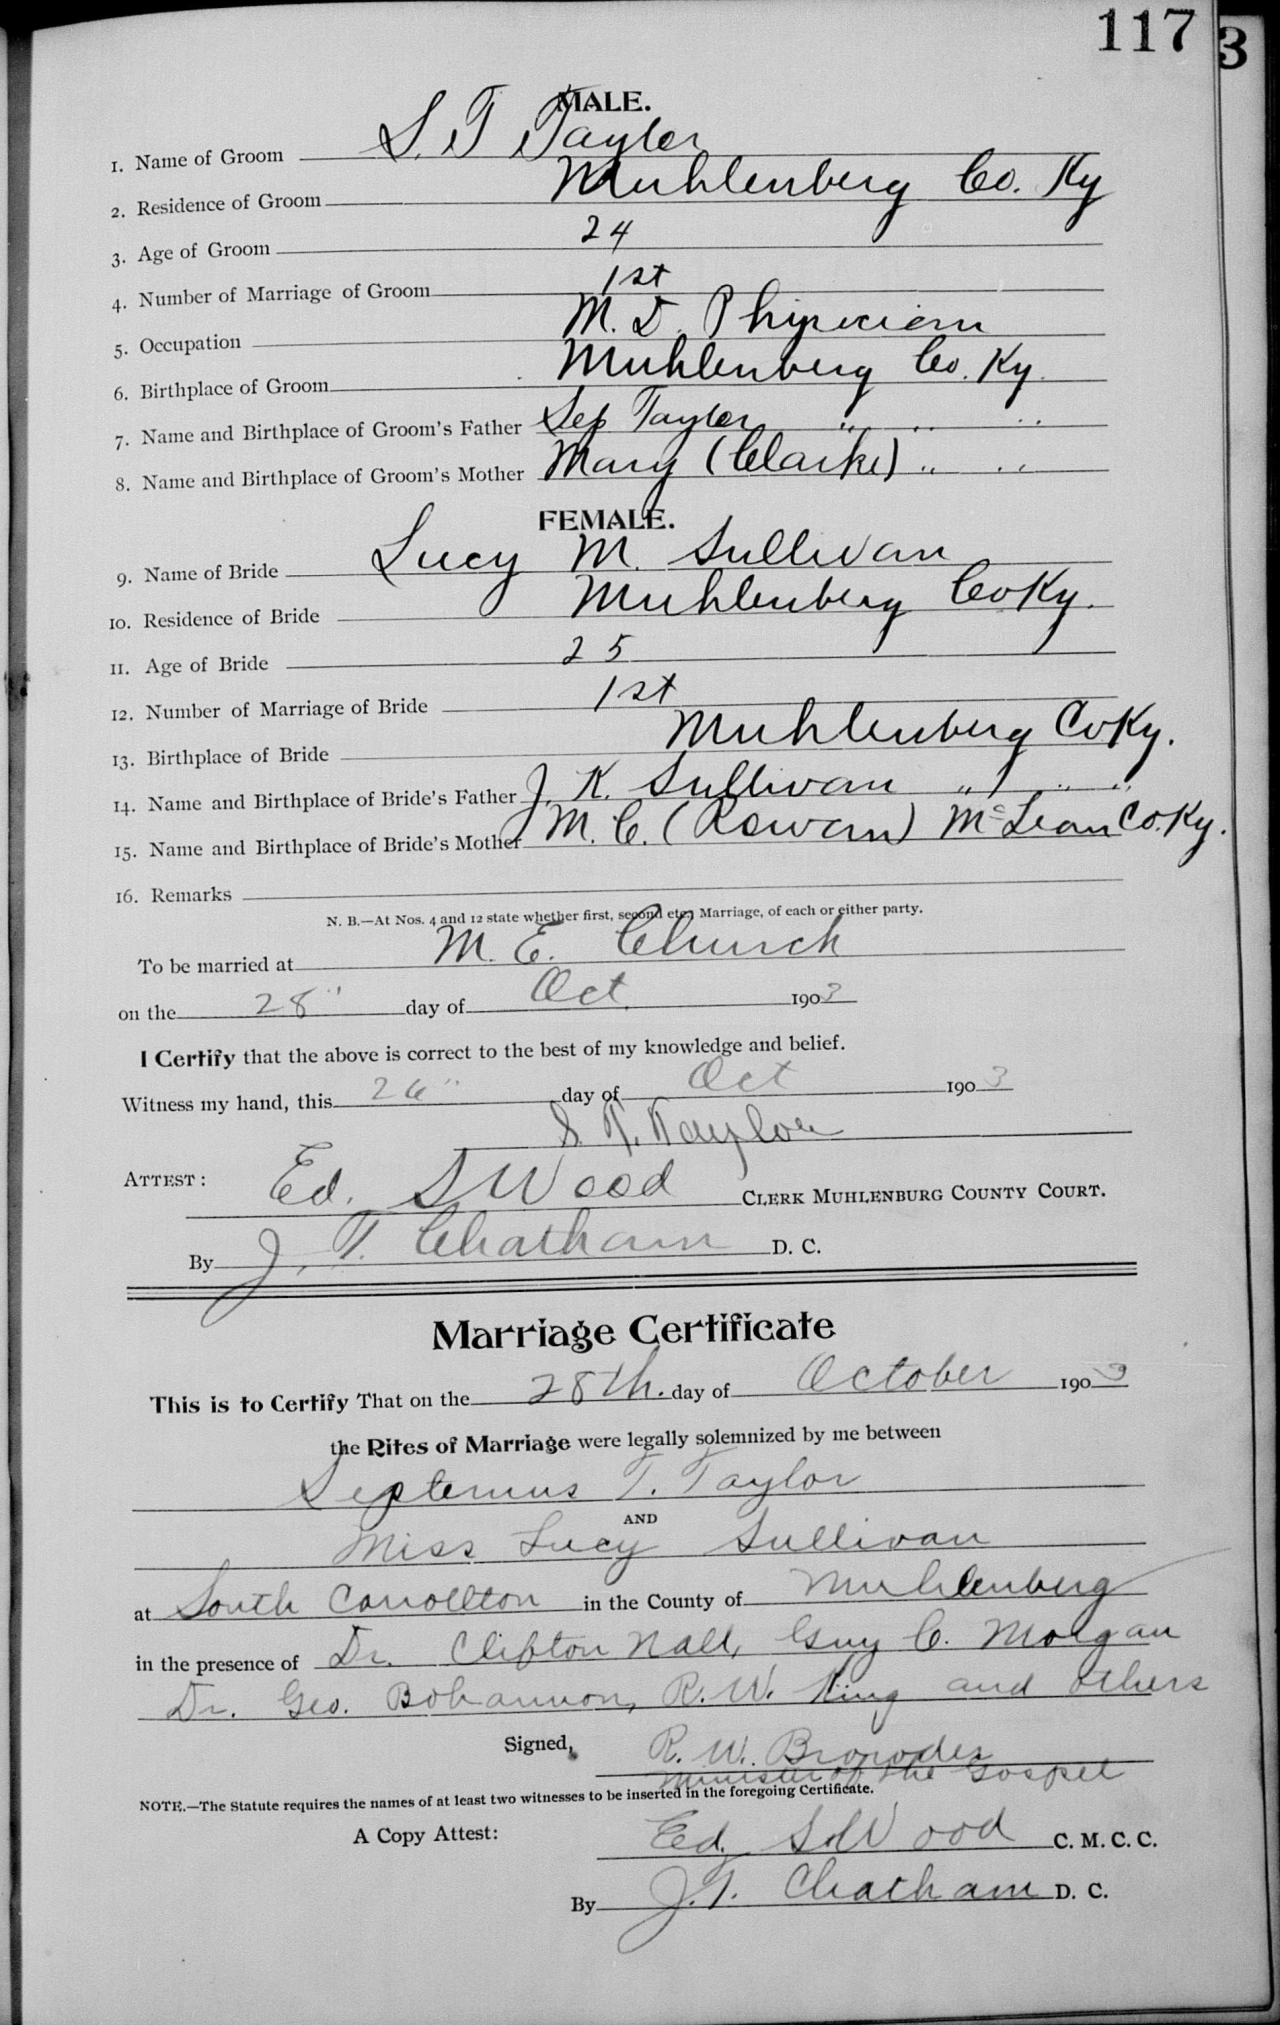 117
3
MALE.
1. Name of Groom S. T Taylor
2. Residence of Groom Muhlenberg Co. Ky
3. Age of Groom 24
4. Number of Marriage of Groom 1st
5. Occupation M. D. Physician
6. Birthplace of Groom Muhlenberg Co. Ky.
7. Name and Birthplace of Groom's Father Sep Taylor " " "
8. Name and Birthplace of Groom's Mother Mary (Clarke) " "
FEMALE.
9. Name of Bride Lucy M. Sullivan
10. Residence of Bride Muhlenberg Co Ky.
11. Age of Bride 25
12. Number of Marriage of Bride 1st
13. Birthplace of Bride Muhlenberg Co Ky.
14. Name and Birthplace of Bride's Father J. K. Sullivan " " "
15. Name and Birthplace of Bride's Mother M. C. (Rowan) McLean Co. Ky.
16. Remarks
N. B.—At Nos. 4 and 12 state whether first, second etc., Marriage, of each or either party.
To be married at M. E. Church
on the 28" day of Oct. 1903
I Certify that the above is correct to the best of my knowledge and belief.
Witness my hand, this 26" day of Oct 1903
S. T. Taylor
ATTEST: Ed. S Wood CLERK MUHLENBURG COUNTY COURT.
By J. T. Chatham D. C.
Marriage Certificate
This is to Certify That on the 28th. day of October 1903
the Rites of Marriage were legally solemnized by me between
Septemus T. Taylor
AND
Miss Lucy Sullivan
at South Carrollton in the County of Muhlenberg
in the presence of Dr. Clifton Nall, Guy C. Morgan
Dr. Geo. Bohannon, R. W. King and others
Signed, R. W. Browder
Minister of the Gospel
NOTE.—The Statute requires the names of at least two witnesses to be inserted in the foregoing Certificate.
A Copy Attest: Ed. S. Wood C. M. C. C.
By J. T. Chatham D. C.